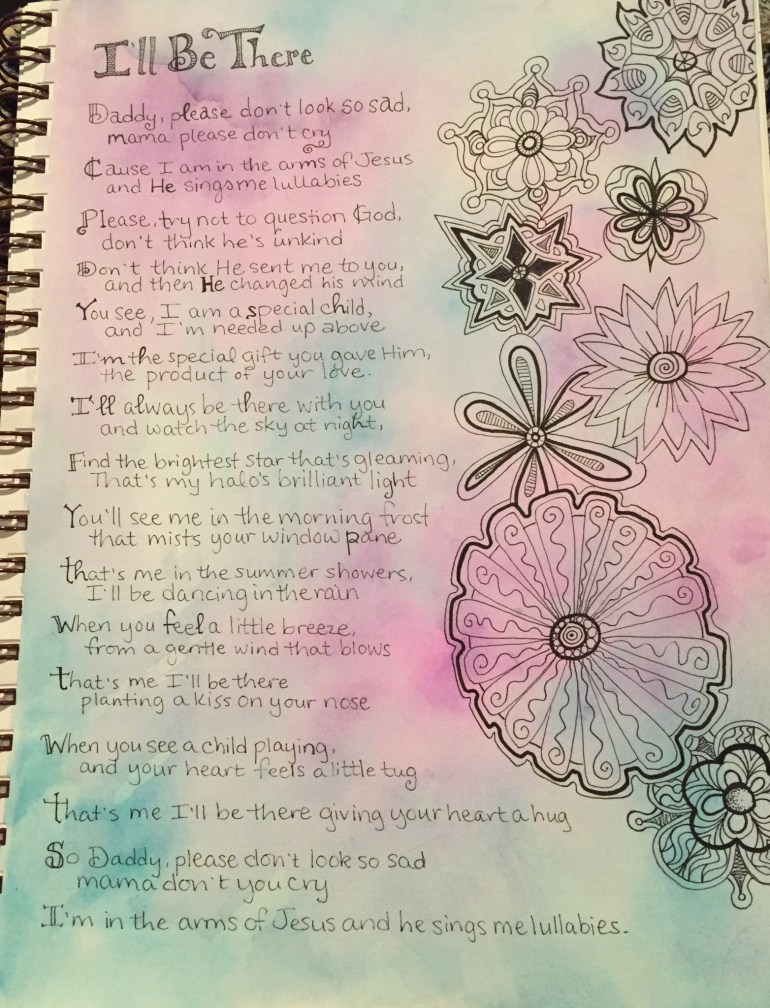 I'll Be There
Daddy, please don't look so sad,
mama please don't cry
Cause I am in the arms of Jesus
and He sings me lullabies
Please, try not to question God,
don't think he's unkind
Don't think He sent me to you,
and then He changed his mind
You see, I am a special child,
and I'm needed up above
I'm the special gift you gave Him,
the product of your love.
I'll always be there with you
and watch the sky at night,
Find the brightest star that's gleaming,
That's my halo's brilliant light
You'll see me in the morning frost
that mists your window pane
that's me in the summer showers,
I'll be dancing in the rain
When you feel a little breeze,
from a gentle wind that blows
that's me I'll be there
planting a kiss on your nose
When you see a child playing,
and your heart feels a little tug
that's me I'll be there giving your heart a hug
So Daddy, please don't look so sad
mama don't you cry
I'm in the arms of Jesus and he sings me lullabies.